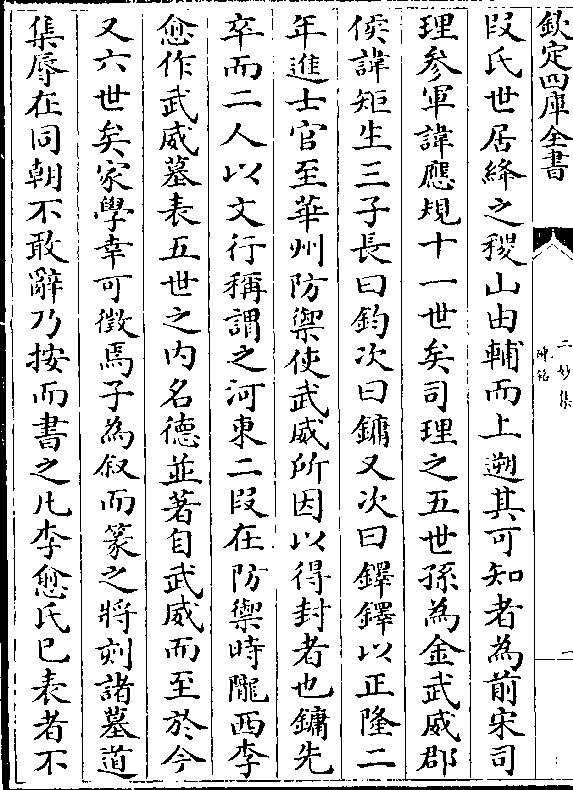 欽定四庫全書
二妙集
碑銘
一
段氏世居絳之稷山由輔而上遡其可知者為前宋司
理參軍諱應規十一世矣司理之五世孫為金武威郡
侯諱矩生三子長曰鈞次曰鏞又次曰鐸鐸以正隆二
年進士官至華州防禦使武威所因以得封者也鏞先
卒而二人以文行稱謂之河東二段在防禦時隴西李
愈作武威墓表五世之內名德並著自武威而至於今
又六世矣家學幸可徵焉子為叙而篆之將刻諸墓道
集辱在同朝不敢辭乃按而書之凡李愈氏已表者不